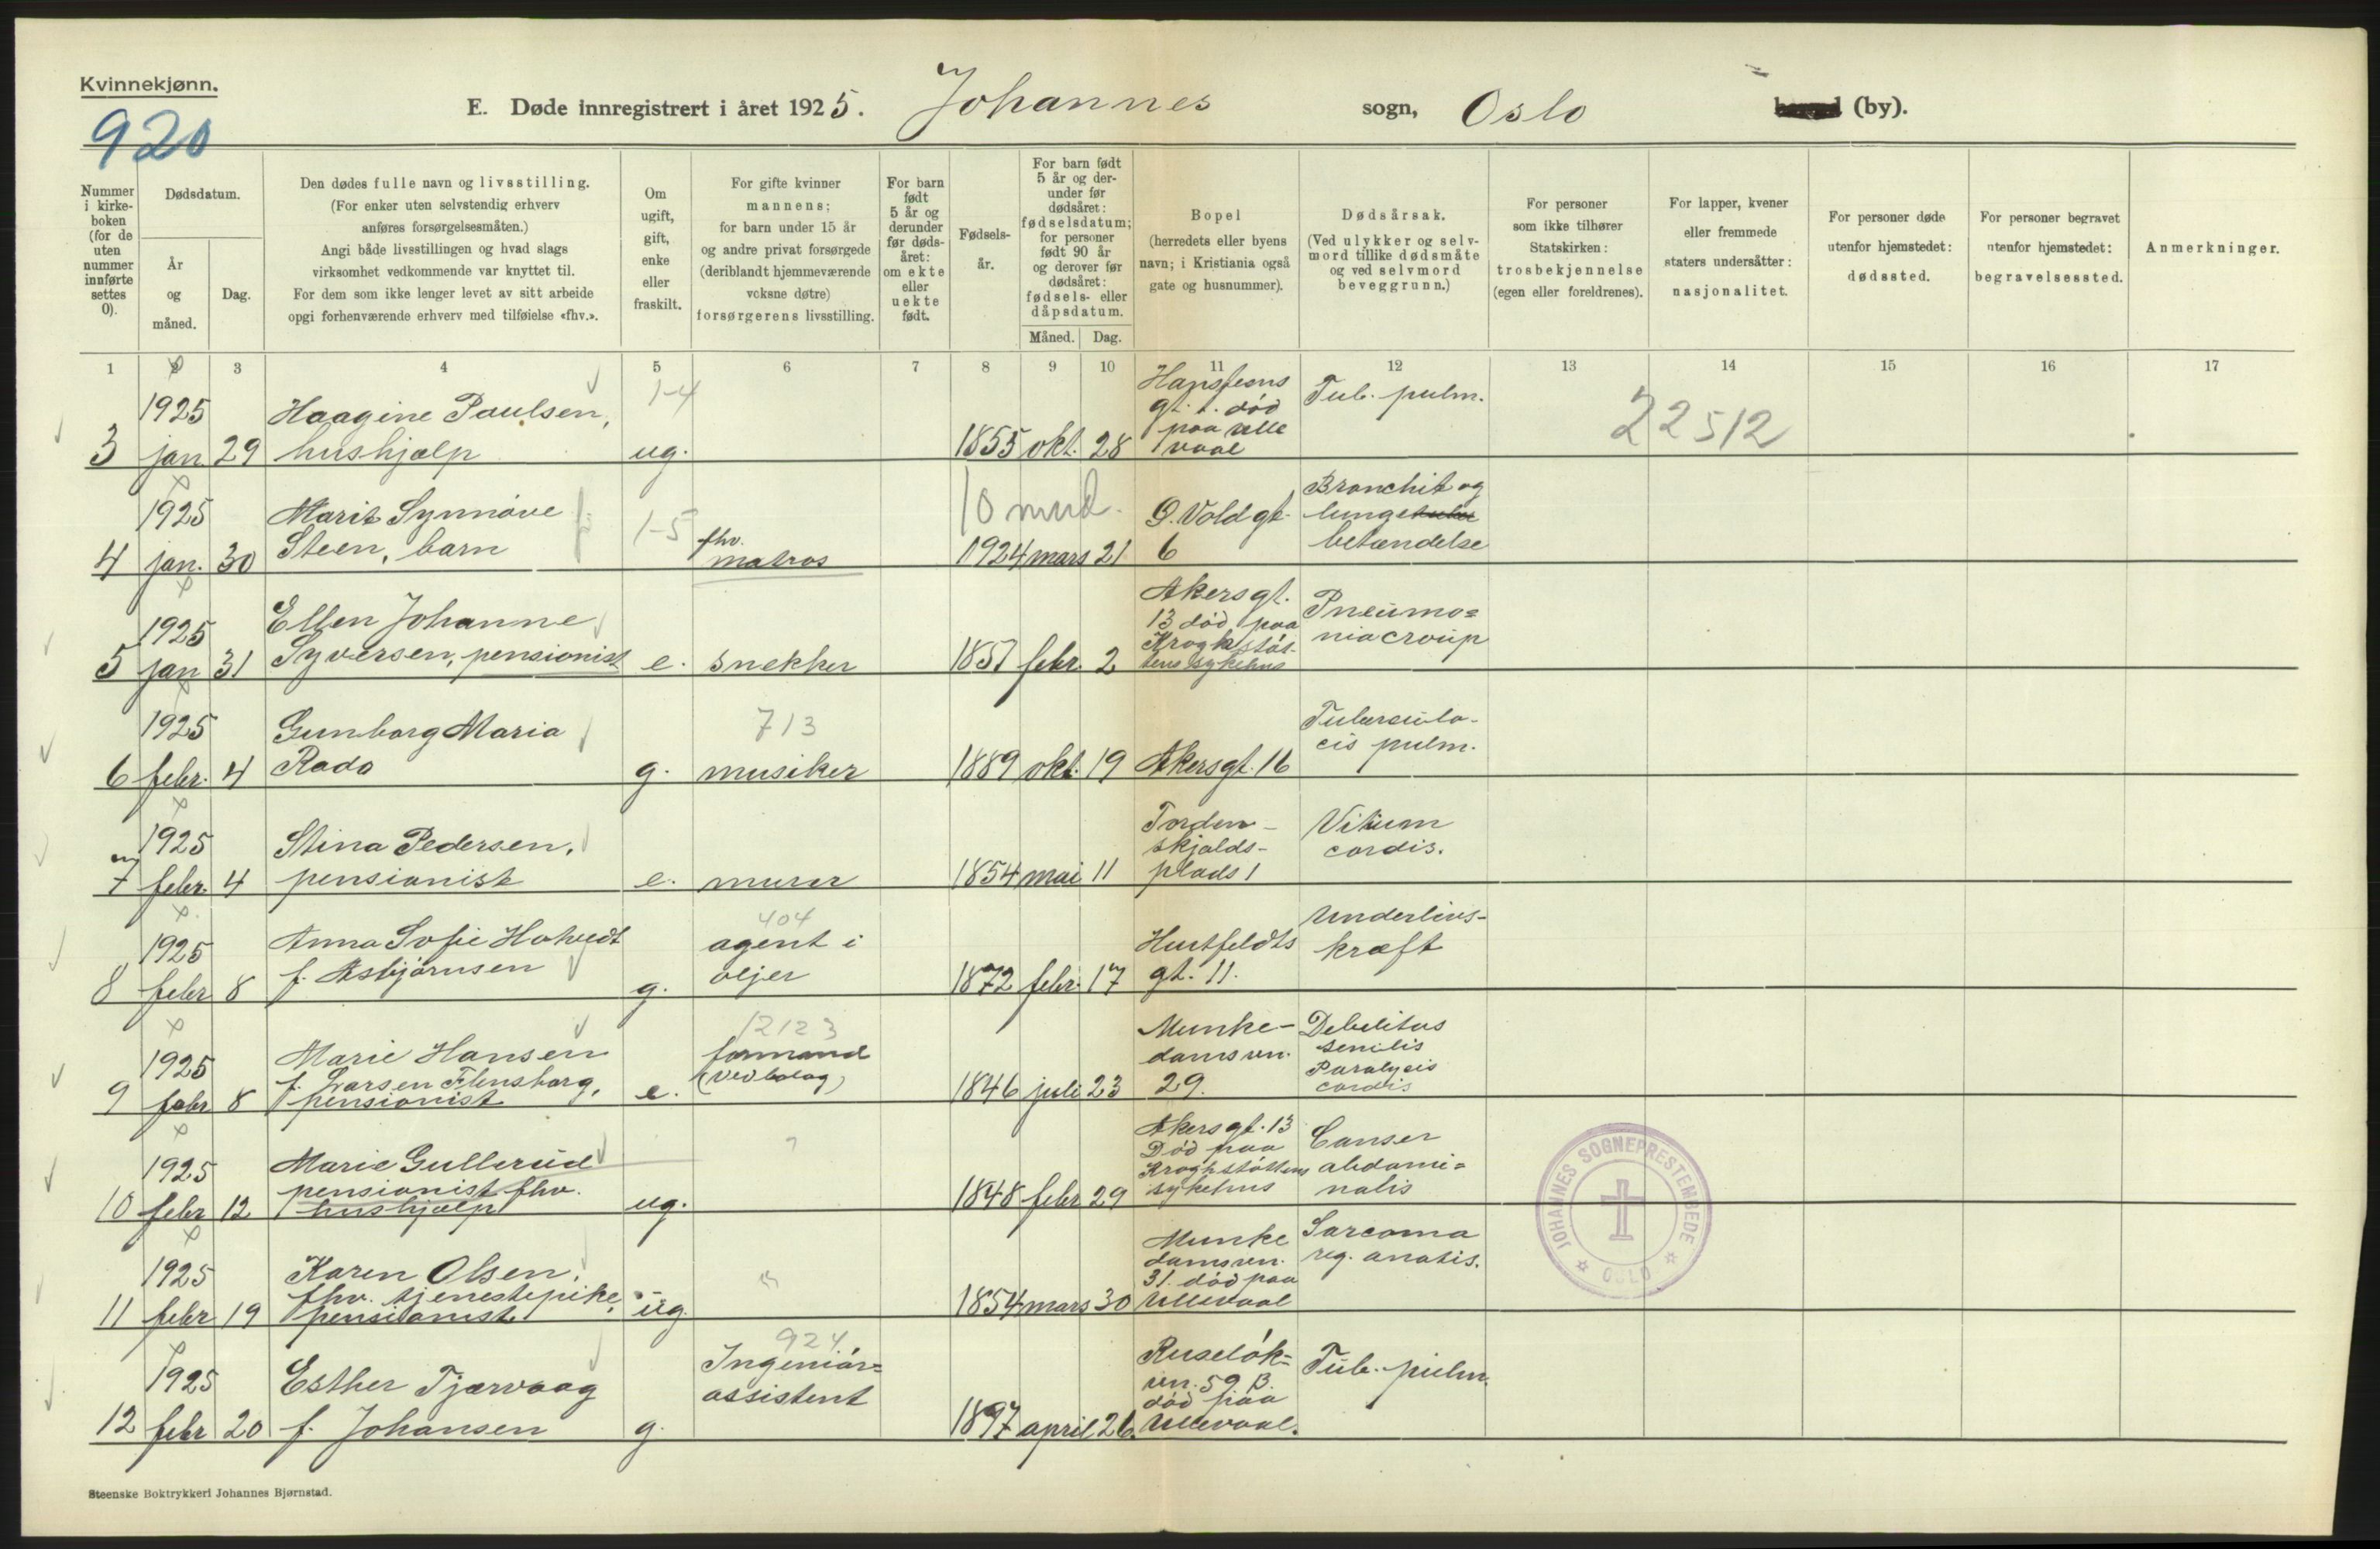 Kvinnekjønn.
920
E. Døde innregistrert i året 1925. Johannes sogn, Oslo (by).
Nummer i kirke-boken (for de uten nummer innførte settes 0).
Dødsdatum.
År og måned.
Dag.
Den dødes fulle navn og livsstilling.
(For enker uten selvstendig erhverv
anføres forsørgelsesmåten.)
Angi både livsstillingen og hvad slags
virksomhet vedkommende var knyttet til.
For dem som ikke lenger levet av sitt arbeide
opgi forhenværende erhverv med tilføielse «fhv.».
Om ugift, gift, enke eller fraskilt.
For gifte kvinner
mannens;
for barn under 15 år
og andre privat forsørgede
(deriblandt hjemmeværende
voksne døtre)
forsørgerens livsstilling.
For barn født 5 år og derunder før døds-året: om ekte eller uekte født.
Fødsels-år.
For barn født 5 år og der-under før dødsåret: fødselsdatum; for personer født 90 år og derover før dødsåret: fødsels- eller dåpsdatum.
Måned. Dag.
Bopel
(herredets eller byens
navn; i Kristiania også
gate og husnummer).
Dødsårsak.
(Ved ulykker og selv-
mord tillike dødsmåte
og ved selvmord
beveggrunn.)
For personer
som ikke tilhører
Statskirken:
trosbekjennelse
(egen eller foreldrenes).
For lapper, kvener
eller fremmede
staters undersåtter:
nasjonalitet.
For personer døde
utenfor hjemstedet:
dødssted.
For personer begravet
utenfor hjemstedet:
begravelsessted.
Anmerkninger.
1 2 3 4 5 6 7 8 9 10 11 12 13 14 15 16 17
3 1925 jan. 29 Haagine Paulsen, hushjælp 1-4 ug. 1855 okt. 28 gt. 1. død paa Ulle vaal Tub. pulm. 22512
4 1925 jan. 30 Marit Synnøve Steen, barn 1-5 fhv. matros 10 mnd. 1924 mars 21 O. Vold gt. 6 Bronchit og lunge betændelse
5 1925 jan 31 Ellen Johanne Syversen, pensionist e. snekker 1857 febr. 2 Akersgt. 13 død paa Krogkstøt-tens sykehus Pneumo= nia croup
6 1925 febr. 4 Gunborg Maria Rado g. 713 musiker 1889 okt. 19 Akersgt. 16 Tuberculo-cis pulm.
7 1925 febr. 4 Stina Pedersen, pensionist e. murer 1854 mai 11 Torden-skjolds-plads 1 Vitium cordis.
8 1925 febr 8 Anna Sofie Hotvedt f. Asbjørnsen g. 404 agent i oljer 1872 febr. 17 Huitfeldts gt. 11. Underlivs-kræft
9 1925 febr 8 Marie Hansen f. Larsen Flensborg, pensionist e. 12123 formand (Vedbolag) 1846 juli 23 Munke-damsven. 29. Debilitas senilis Paralysis cordis
10 1925 febr 12 Marie Gullerud pensionist fhv. hushjælp ug. ? 1848 febr 29 Akersgt. 13 Død paa Kroghstøttens sykehus Canser abdomi= nalis
11 1925 febr 19 Karen Olsen, fhv. tjenestepike, pensionist. ug. 1854 mars 30 Munke damsven. 31. død paa Ullevaal Sarcoma reg. anatis.
12 1925 febr 20 Esther Tjærvaag f. Johansen g. 924 Ingeniør= assistent 1897 april 26. Ruseløk= ven. 59 B. død paa Ullevaal. Tub. pulm.
JOHANNES SOGNEPRESTEMBEDE OSLO
Steenske Boktrykkeri Johannes Bjørnstad.